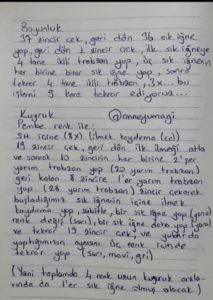 Boyunluk
37 zincir çek, geri dön 36 sık iğne
yap, geri dön 1 zincir çek, ilk sık iğneye
4 tane ikili trabzan yap, üç sık iğnenin
her birine birer sık iğne yap, sonra
tekrar 4 tane ikili trabzan, 3x... bu
işlemi 9 kere tekrar ediyoruz...
Kuyruk @anneyumagi
Pembe renk ile;
SH içine (8x) ilmek kaydırma (cc)
19 zincir çek, geri dön ilk ilmeği atla
ve sonraki 10 zincirin her birine 2'şer
yarım trabzan yap (20 yarım trabzan)
geri kalan 8 zincire 1'er yarım trabzan
yap (28 yarım trabzan) zincir çekerek
başladığımız sık iğnenin içine ilmek
kaydırma yap, sabitle, bir sık iğne yap
renk değiş (sarı), bir sık iğne daha yap (sarı)
ve tekrar 19 zincir çek, ve yukarıda
yaptığımızın aynısını üç renk için de
tekrar yap (sarı, mavi, gri)
(Yani toplamda 4 renk uzun kuyruk arala-
rında da 1'er sık iğne olmuş olacak.)